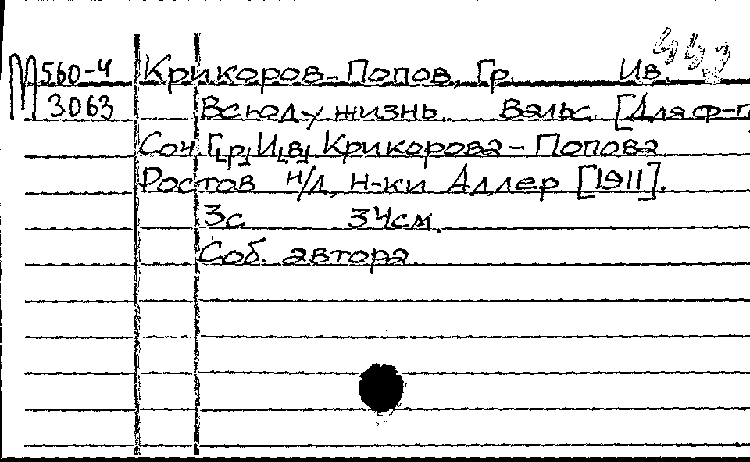 М560-4 Крикоров-Попов, Гр. Ив.
3063 Всюду жизнь. Вальс. [Для ф-п
Соч. Г[р]. И[в]. Крикорова-Попова
Ростов н/Д, н-ки Аллер [1911].
3с. 34см.
Соб. автора.